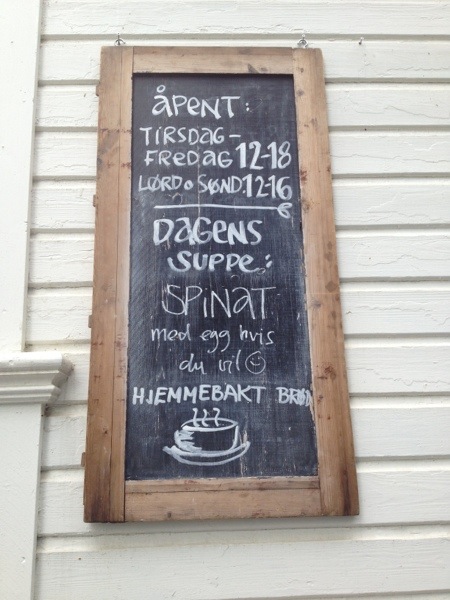 ÅPENT:
TIRSDAG-
FREDAG 12-18
LØRD o SØND: 12-16
DAGENS
SUPPE:
SPINAT
med egg hvis
du vil ☺
HJEMMEBAKT BRØD